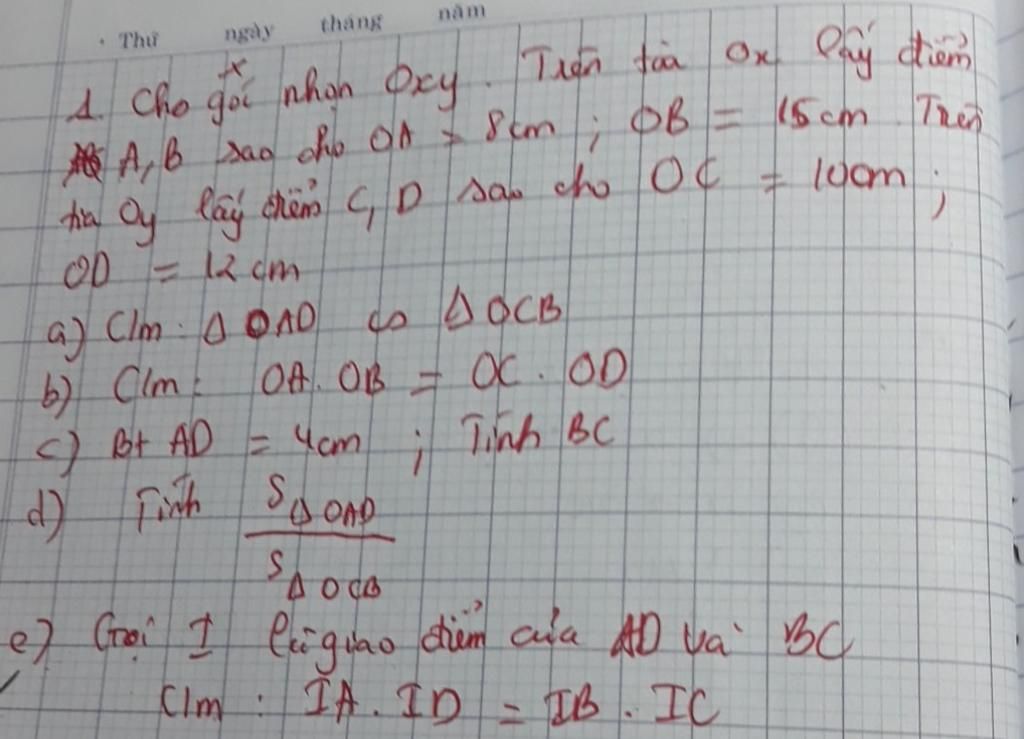 Thứ ngày tháng năm
1. Cho góc nhọn Oxy. Trên tia Ox lấy điểm
A, B sao cho OA = 8cm ; OB = 15cm. Trên
tia Oy lấy điểm C, D sao cho OC = 10cm ;
OD = 12 cm
a) C/m : Δ OAD ∽ Δ OCB
b) C/m : OA. OB = OC. OD
c) Bt AD = 4cm ; Tính BC
d) Tính S Δ OAD
S Δ OCB
e) Gọi I là giao điểm của AD và BC
C/m : IA. ID = IB. IC